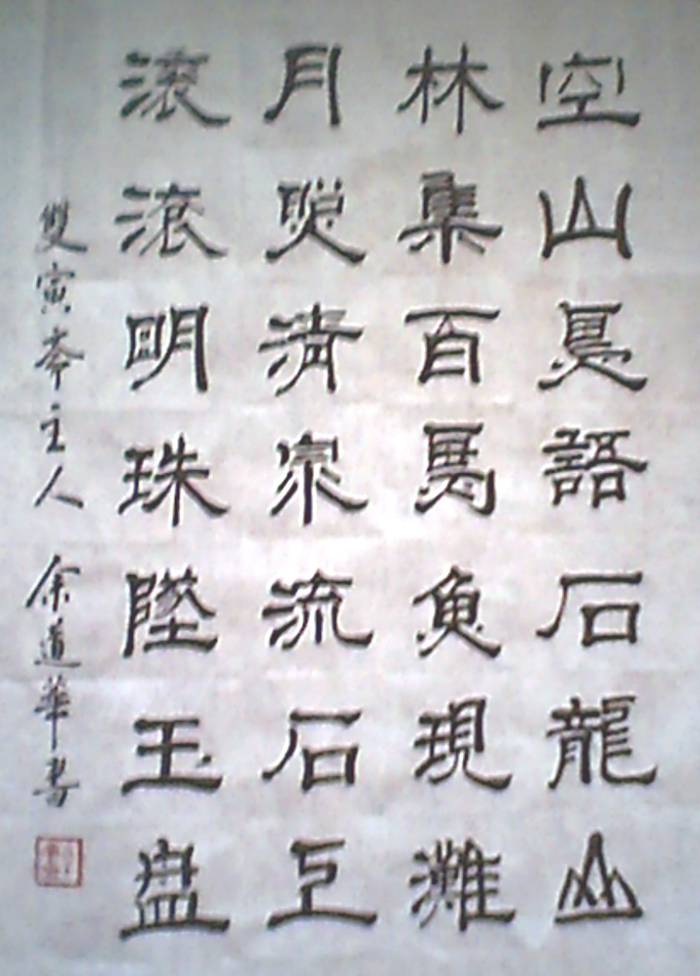 空山鳥語石龍山
林集百鳥魚現灘
月照清泉流石上
滾滾明珠墜玉盤
雙寅齋主人 余道華書